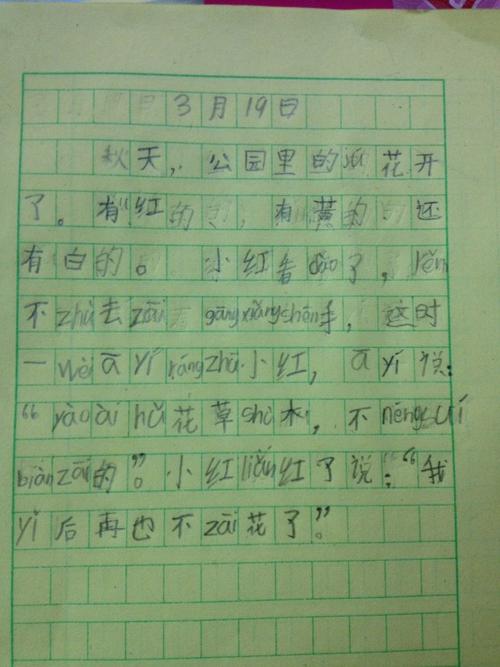 3月19日
秋天，公园里的花开
了。有红的，有黄的，还
有白的。小红看dào了，rěn
不zhù去zāi gāng xiǎng shēn手，这时
一wèi ā yí ráng zhǔ小红，ā yí说：
“yào ài hǔ花草shù木，不néng suí
biàn zāi的”。小红liǎn红了说：“我
yǐ后再也不zāi花了”。